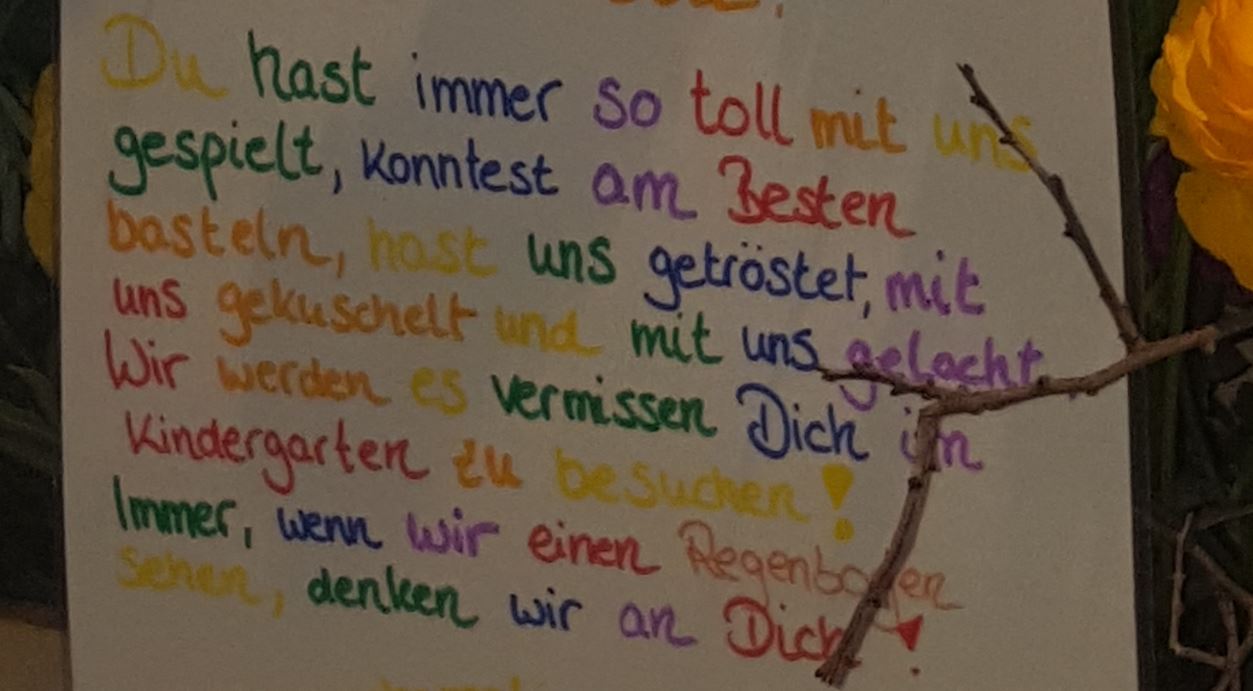 Du hast immer so toll mit uns
gespielt, konntest am Besten
basteln, hast uns getröstet, mit
uns gekuschelt und mit uns gelacht.
Wir werden es vermissen Dich im
Kindergarten zu besuchen!
Immer, wenn wir einen Regenbogen
sehen, denken wir an Dich!